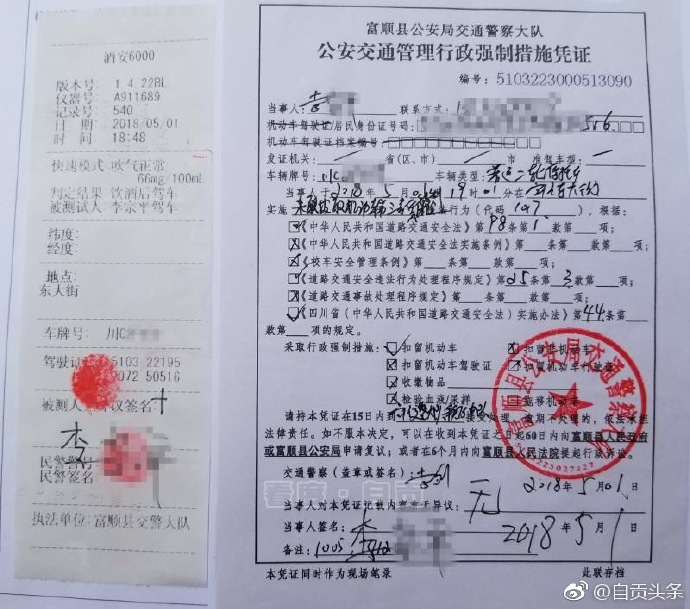 酒安6000
版本号: 1.4.22RL
仪器号 A911689
记录号 540
日 期 2018/05/01
时 间 18:48
快速模式 吹气正常
66mg/100mL
判定结果 饮酒后驾车
纬度:
经度:
地点:
东大街
车牌号: 川C
驾驶证 5103 22195
072 50516
被测人 议签名
李
民警警号
民警签名
执法单位:富顺县交警大队
富顺县公安局交通警察大队
公安交通管理行政强制措施凭证
编号:5103223000513090
当事人: 联系方式:
机动车驾驶证/居民身份证号码: 516
机动车驾驶证档案编号:
发证机关: 省(区、市) 市 准驾车型:
车辆牌号: 车辆类型: 普通二轮摩托车
当事人于2018年5月 19时01分在
实施 行为(代码 ),根据:
《中华人民共和国道路交通安全法》第98条第1款第 项;
《中华人民共和国道路交通安全法实施条例》第 条第 款第 项;
《校车安全管理条例》第 条第 款第 项;
《道路交通安全违法行为处理程序规定》第25条第3款第 项;
《道路交通事故处理程序规定》第 条第 款第 项;
《四川省〈中华人民共和国道路交通安全法〉实施办法》第44条
款第 项的规定。
采取行政强制措施: 扣留机动车 扣留非机动车
扣留机动车驾驶证
收缴物品
检验血液/尿样 拖移机动车
请持本凭证在15日内到 接受处理。逾期不处理的,依法承担
法律责任。如不服本决定,可以在收到本凭证之日起60日内向富顺县人民政府
或富顺县公安局申请复议;或者在6个月内向富顺县人民法院提起行政诉讼。
交通警察(盖章或签名): 2018年5月01日
当事人对本凭证记载内容有无异议: 无
当事人签名: 李 2018年5月1日
备注:
本凭证同时作为现场笔录 此联存档
富顺县公安局交通警察大队
看度·自贡
@自贡头条